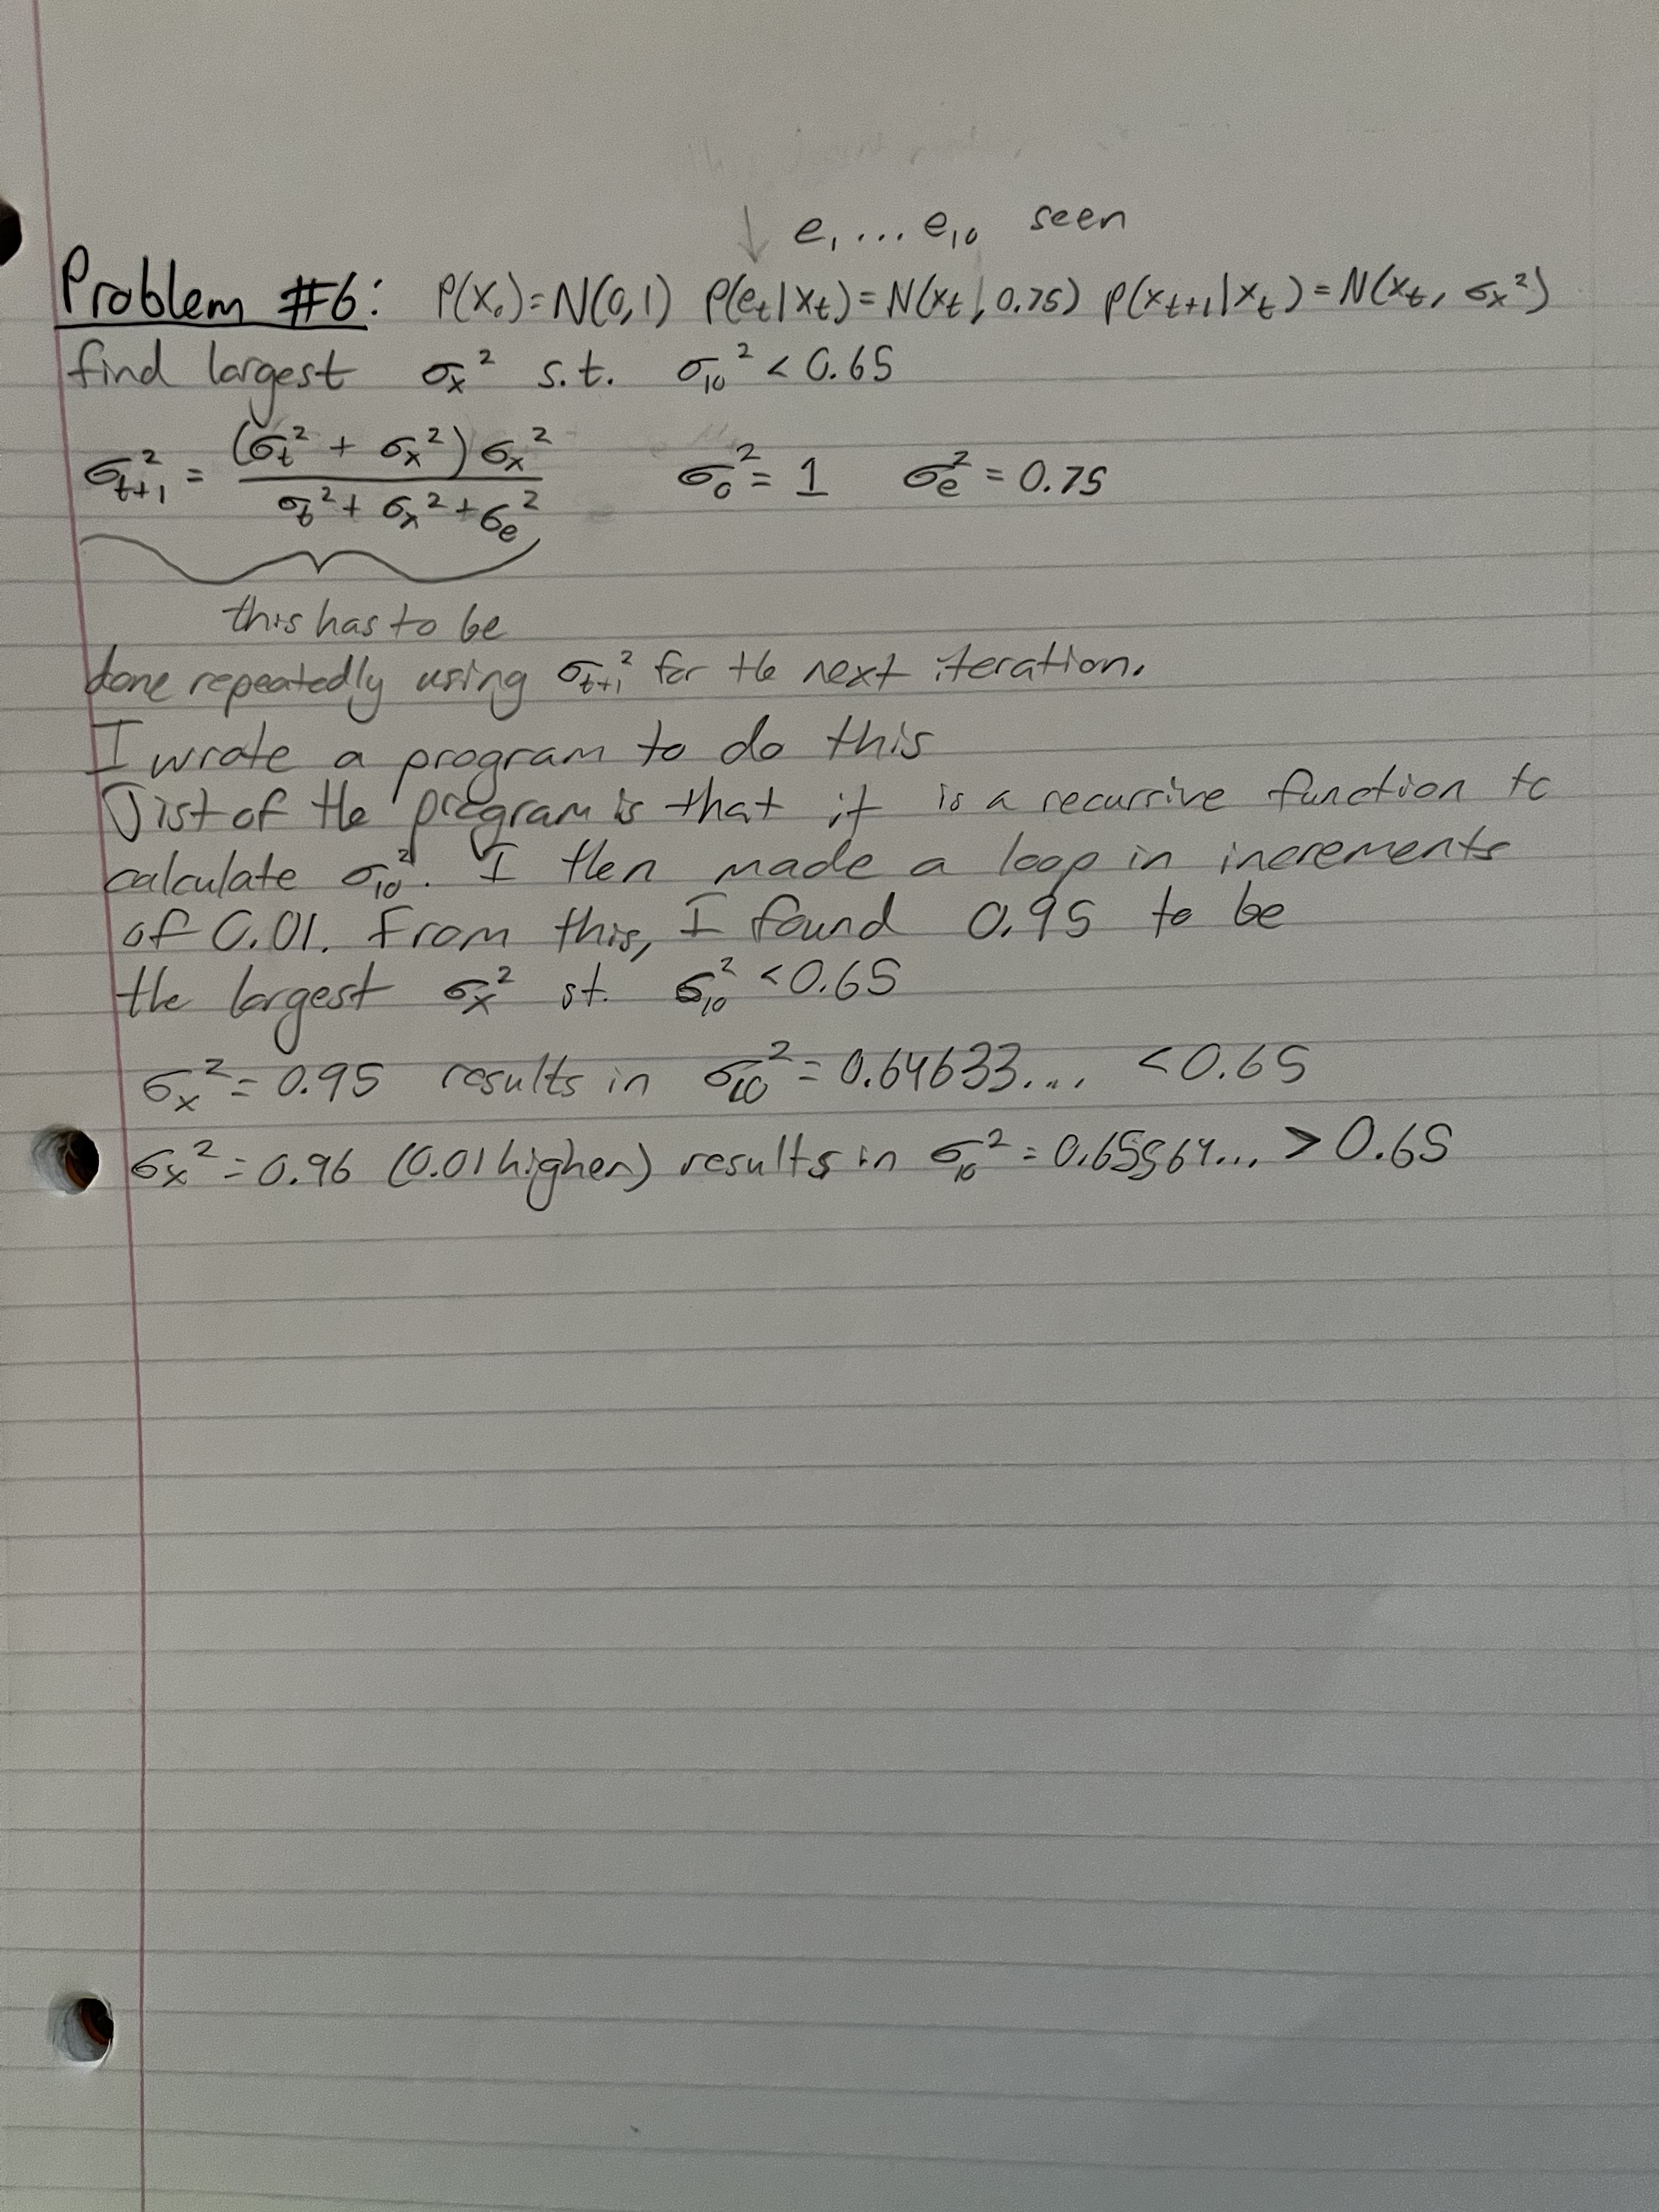 e₁ ... e₁₀ seen
Problem #6: P(X₀)=N(0,1) P(eₜ|xₜ)=N(xₜ,0.75) P(xₜ₊₁|xₜ)=N(xₜ, σₓ²)
find largest σₓ² s.t. σ₁₀² < 0.65
σₜ₊₁² = (σₜ² + σₓ²)σₓ² / σₜ² + σₓ² + σₑ² σ₀² = 1 σₑ² = 0.75
this has to be
done repeatedly using σₜ₊₁² for the next iteration.
I wrote a program to do this
Jist of the program is that it is a recursive function to
calculate σ₁₀². I then made a loop in increments
of 0.01. From this, I found 0.95 to be
the largest σₓ² st. σ₁₀² < 0.65
σₓ² = 0.95 results in σ₁₀² = 0.64633... < 0.65
σₓ² = 0.96 (0.01 higher) results in σ₁₀² = 0.65564... > 0.65